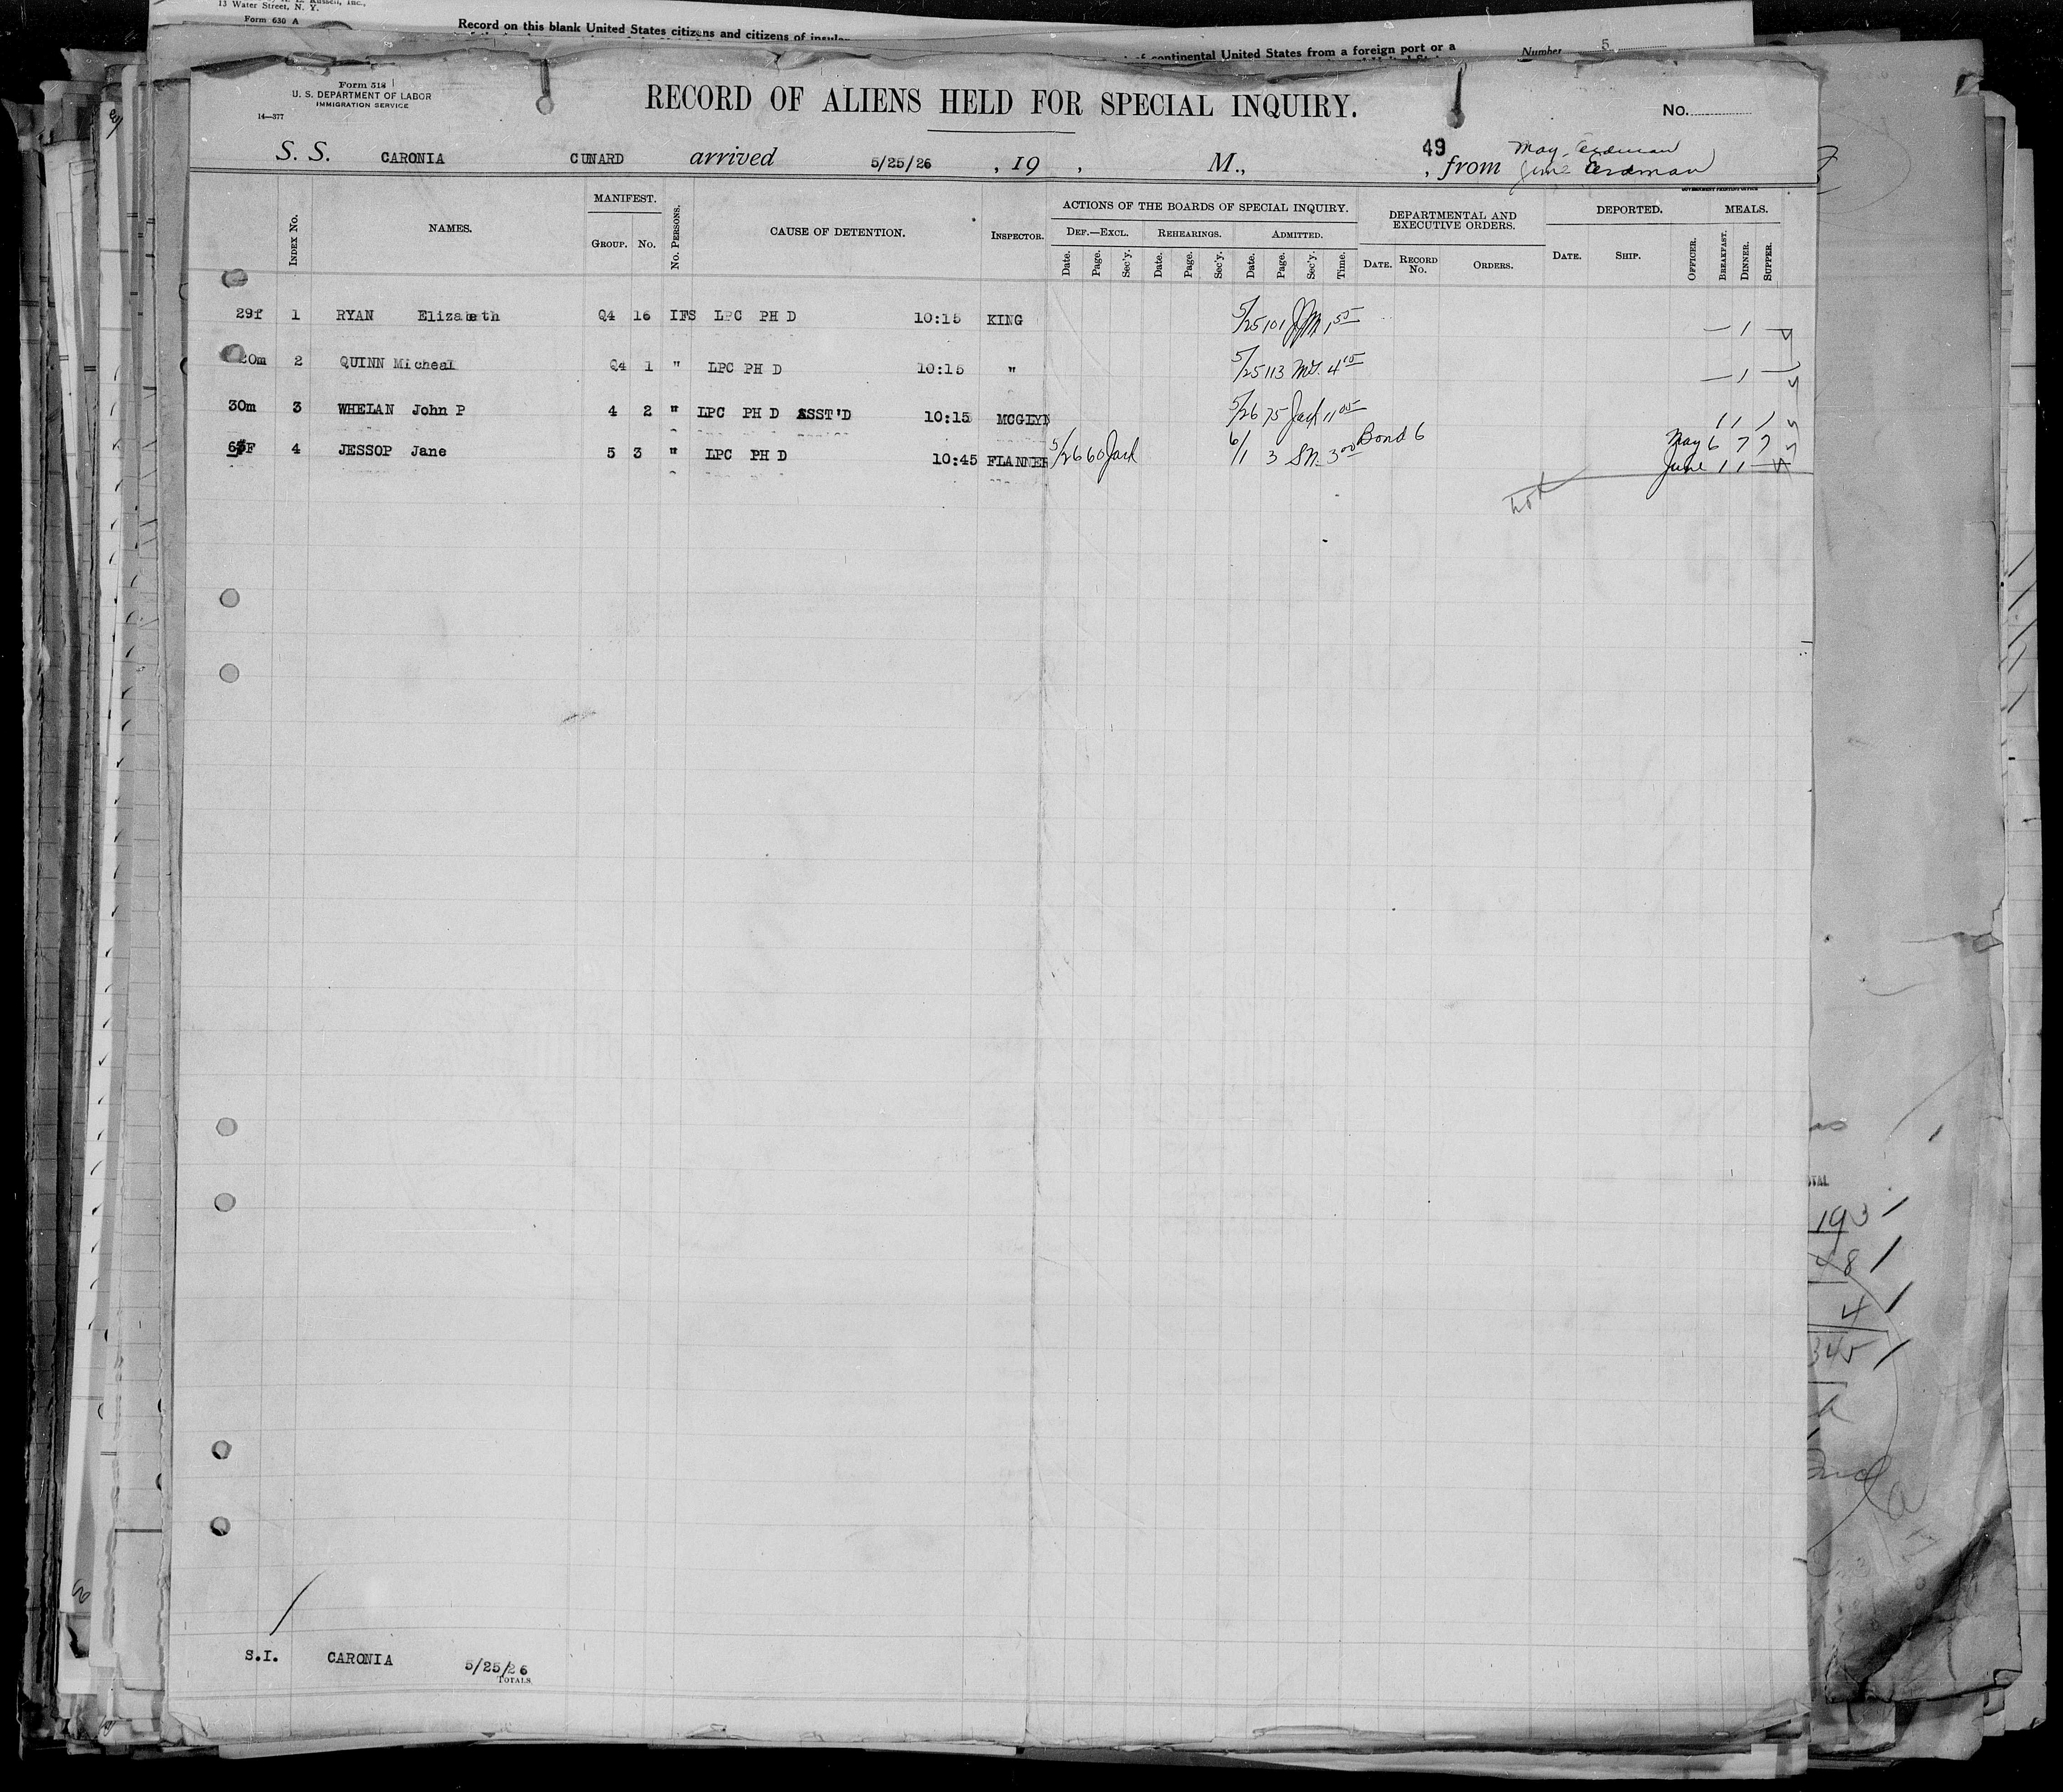 13 Water Street, N. Y.
Form 630 A
Record on this blank United States citizens and citizens of insular
of continental United States from a foreign port or a
Number 5
Form 518
U. S. DEPARTMENT OF LABOR
IMMIGRATION SERVICE
14—377
RECORD OF ALIENS HELD FOR SPECIAL INQUIRY.
No.
S. S. CARONIA CUNARD arrived 5/25/26 , 19 , M., 49 , from May. Erdman
June Erdman
GOVERNMENT PRINTING OFFICE
INDEX No. NAMES. MANIFEST. GROUP. No. No. PERSONS. CAUSE OF DETENTION. INSPECTOR.
ACTIONS OF THE BOARDS OF SPECIAL INQUIRY. DEPARTMENTAL AND EXECUTIVE ORDERS. DEPORTED. MEALS.
DEF.—EXCL. REHEARINGS. ADMITTED.
Date. Page. Sec'y. Date. Page. Sec'y. Date. Page. Sec'y. Time. DATE. RECORD No. ORDERS. DATE. SHIP. OFFICER. BREAKFAST. DINNER. SUPPER.
29f 1 RYAN Elizabeth Q4 16 IFS LPC PH D 10:15 KING 5/25 101 1 55 — 1
20m 2 QUINN Micheal Q4 1 " LPC PH D 10:15 " 5/25 113 4 15 — 1 —
30m 3 WHELAN John P 4 2 " LPC PH D ASST'D 10:15 MCGLYN 5/26 75 Jack 11 05 1 1 1
F 4 JESSOP Jane 5 3 " LPC PH D 10:45 FLANNER 5/26 60 Jack 6/1 3 SN. 3 00 Bond 6 May 6 7 7
June 1 1 —
S.I. CARONIA 5/25/26
TOTALS
OTAL
193
48
4
345